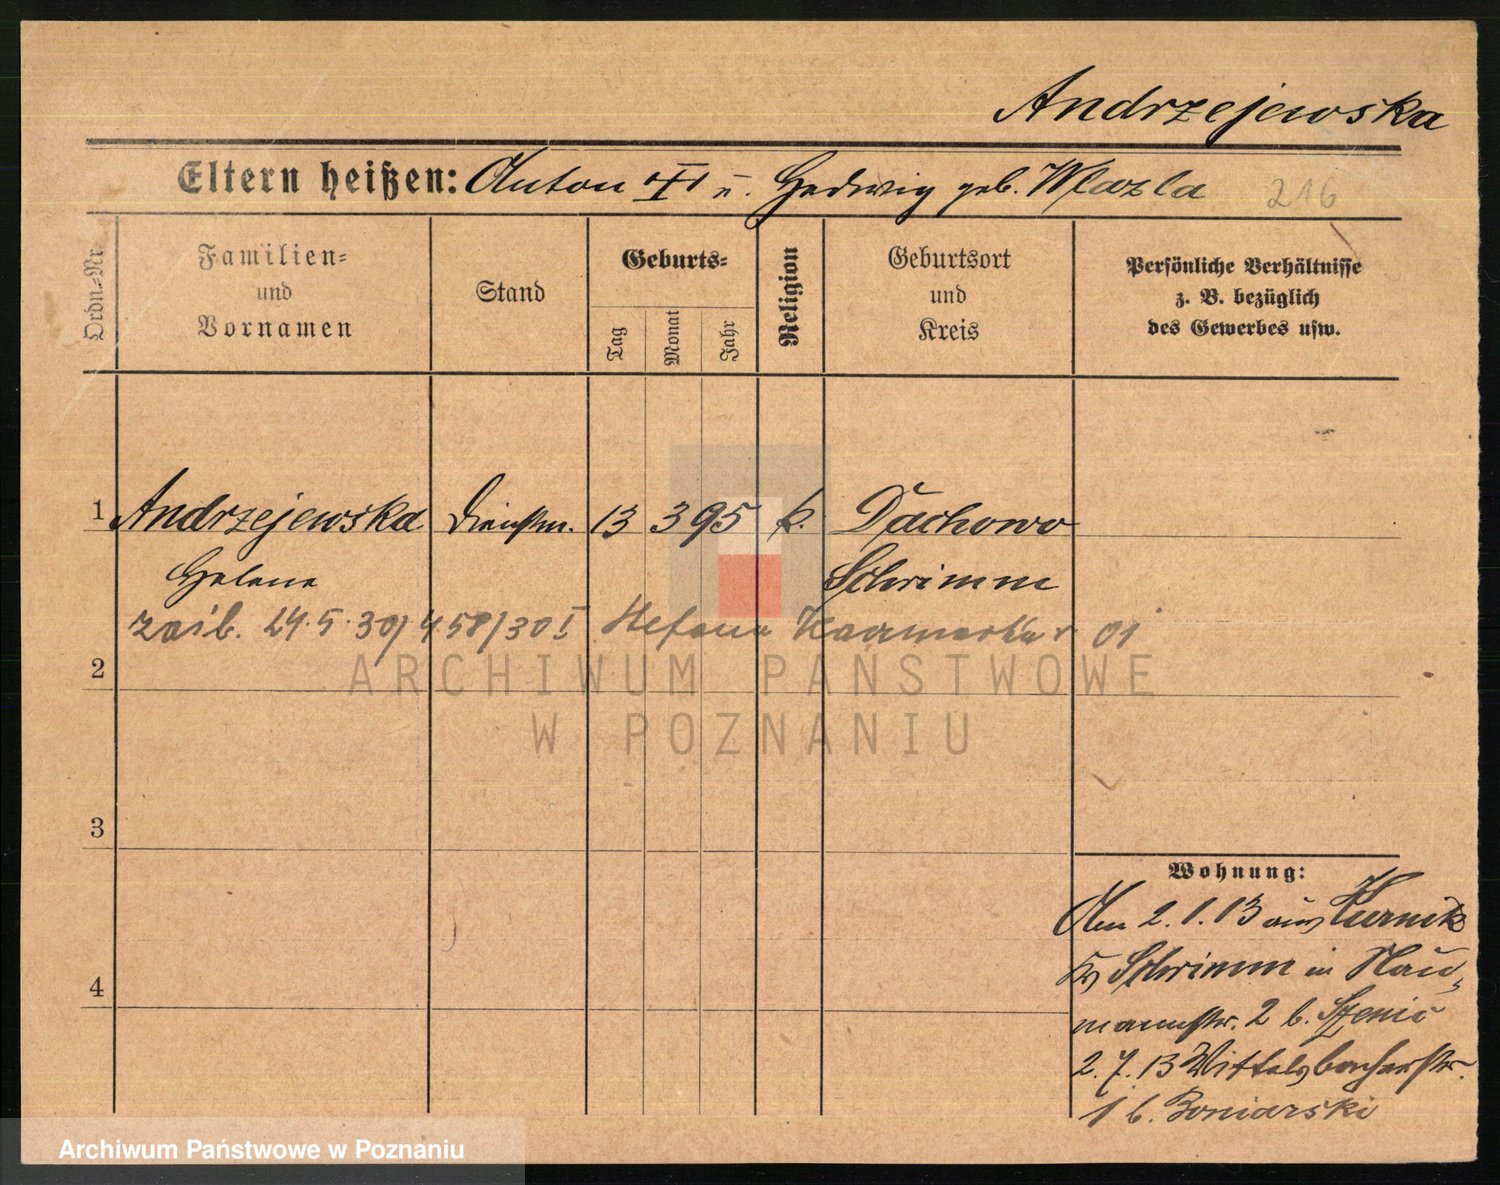 Andrzejewska
Eltern heißen: Anton ✝ u. Hedwig geb. Wlazla 216
Ordn.-Nr.
Familien-
und
Vornamen
Stand
Geburts-
Tag
Monat
Jahr
Religion
Geburtsort
und
Kreis
Persönliche Verhältnisse
z. B. bezüglich
des Gewerbes usw.
1 Andrzejewska Dienstm. 13 3 95 k. Dachowo
Helena Schrimm
24.5.30/458/30 I Stefana 01
2
ARCHIWUM PAŃSTWOWE
W POZNANIU
3
4
Wohnung:
Am 2.1.13 aus Kurnik
Kr Schrimm in Nau-
mannstr. 2 b.
2.7.13 Wittelsbacherstr.
1 b. Boniarski
Archiwum Państwowe w Poznaniu